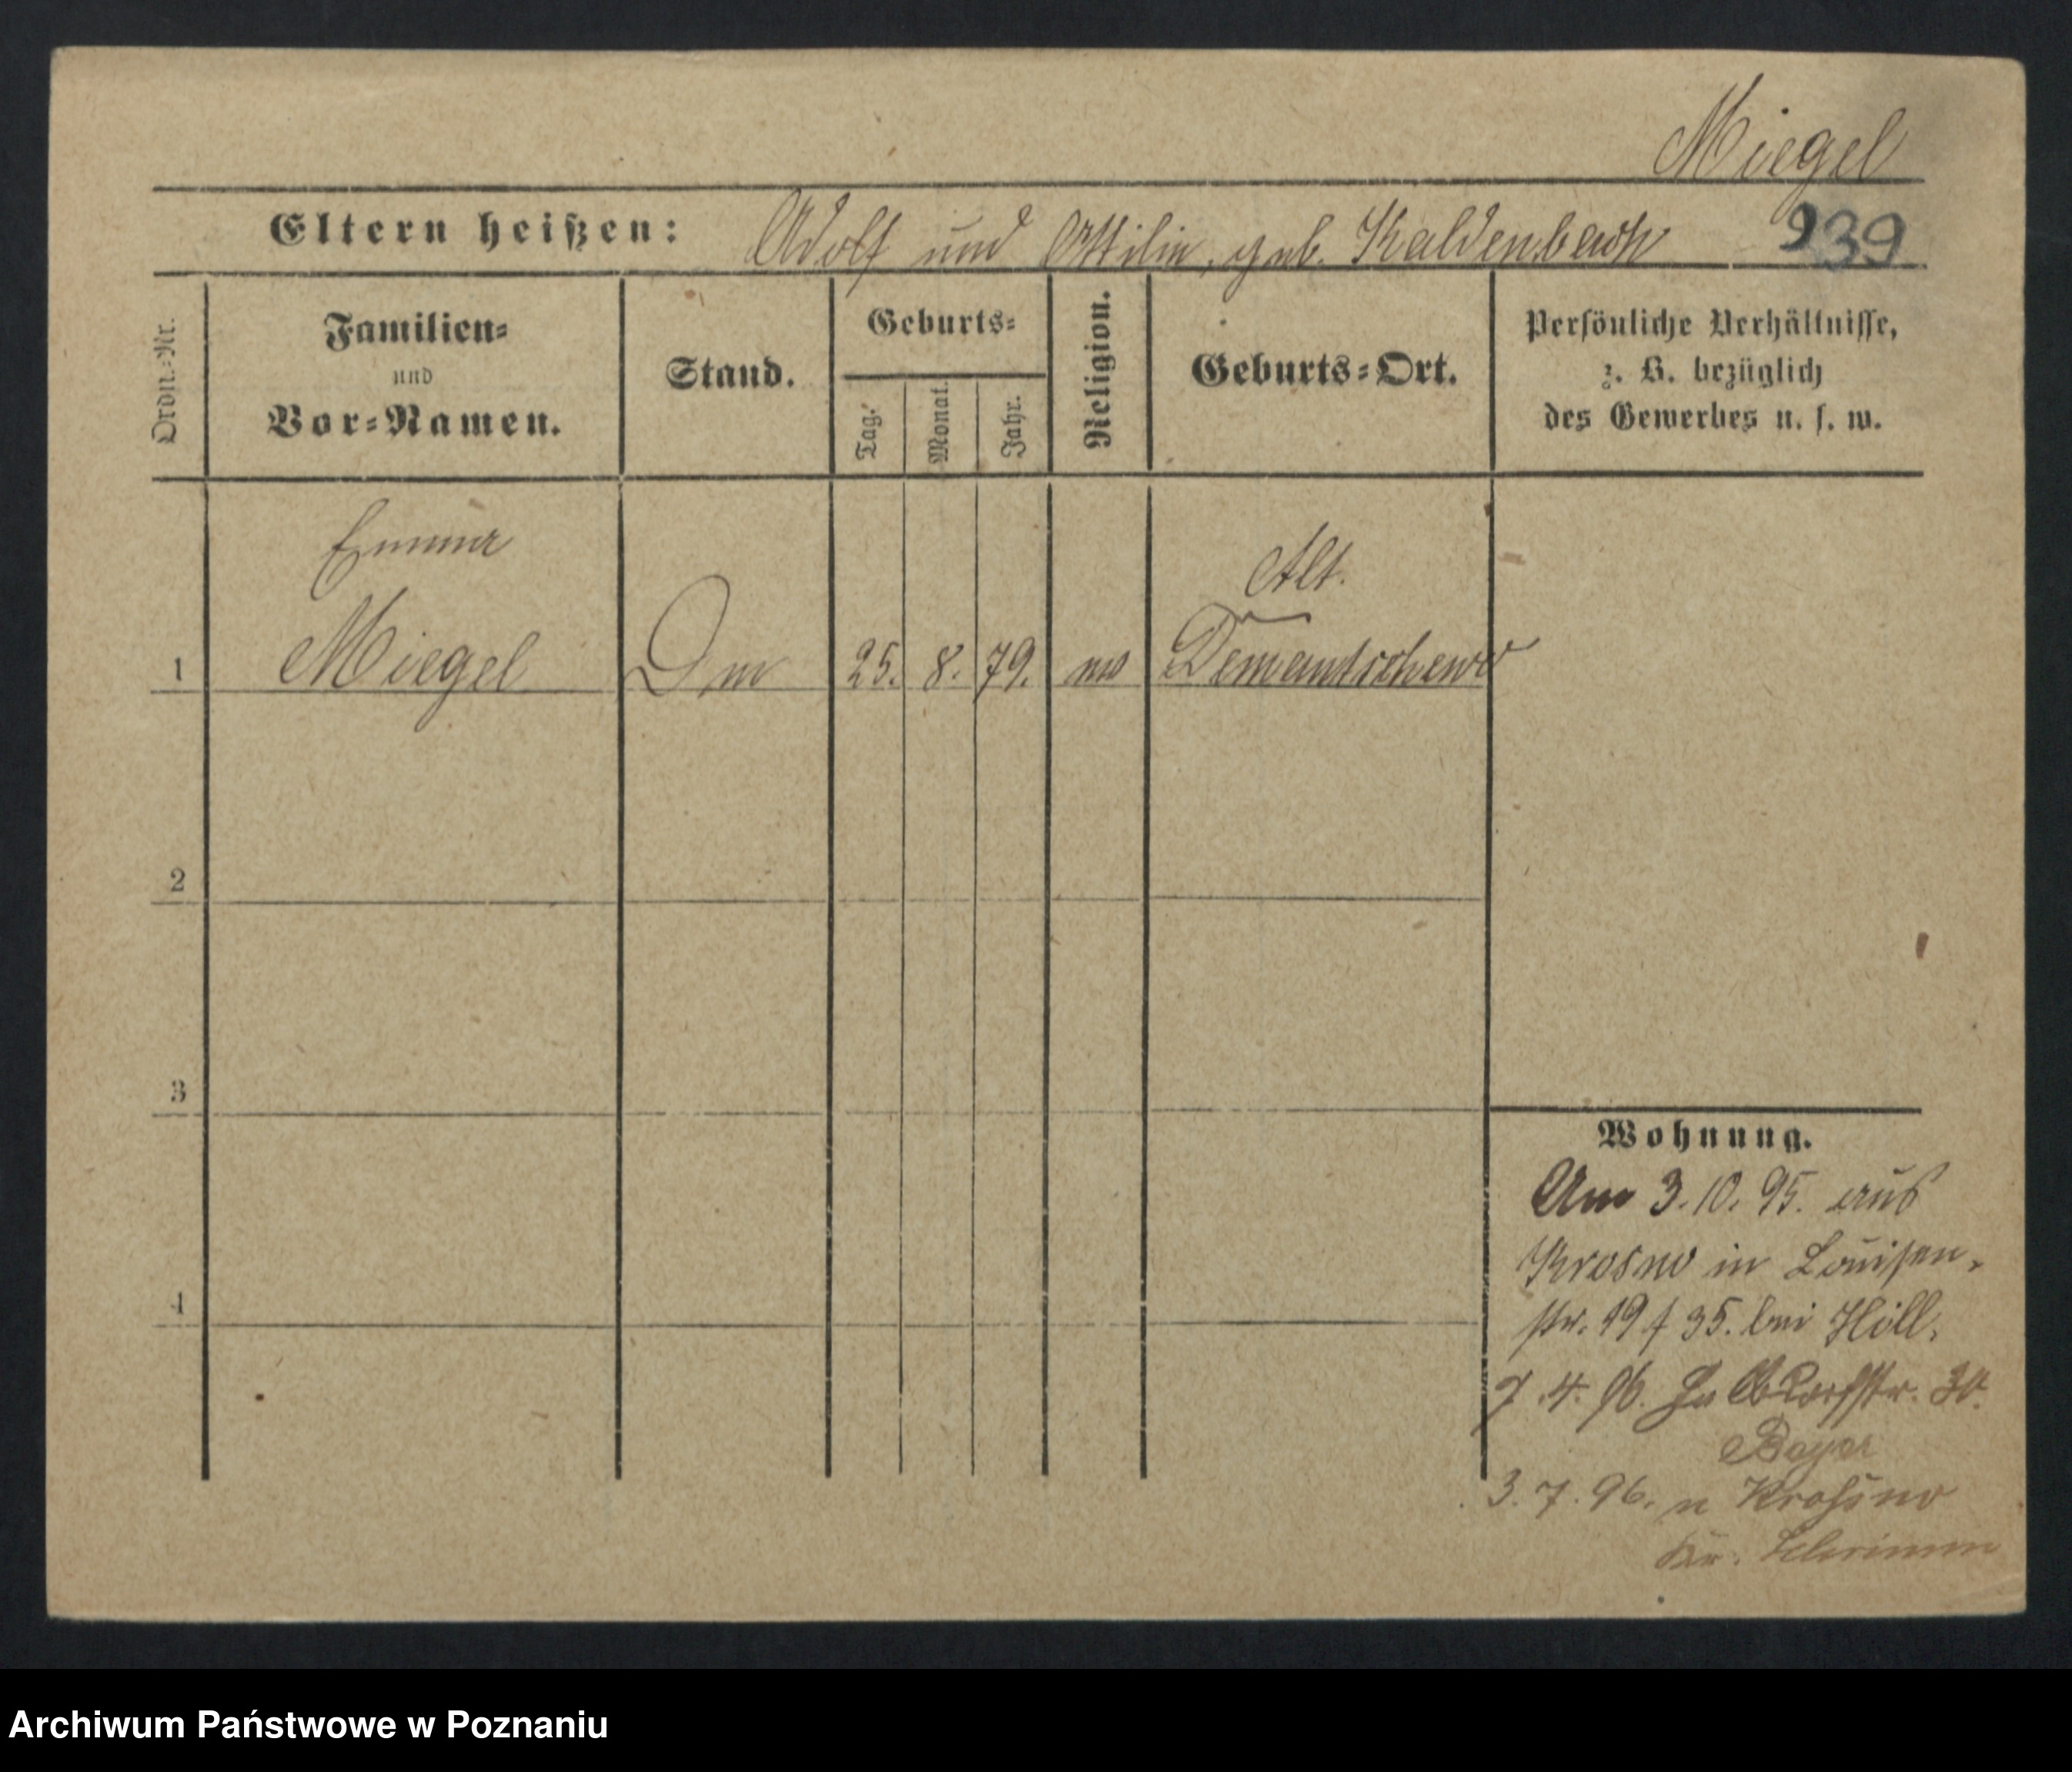 Miegel
Eltern heißen: Adolf und Ottilie, geb. Kaldenbach 939
Ordn.-Nr.
Familien-
und
Vor-Namen.
Stand.
Geburts-
Tag.
Monat.
Jahr.
Religion.
Geburts-Ort.
Persönliche Verhältnisse,
z. B. bezüglich
des Gewerbes u. s. w.
Emma
Alt.
1 Miegel 25. 8. 79. ev Demantschewo
2
3
4
Wohnung.
Am 3. 10. 95. aus
Krosno in Louisen-
str. 19 f 35. bei Höll.
7. 4. 96. Halbdorfstr. 30.
Beyer
3. 7. 96. n
Kr. Schrimm
Archiwum Państwowe w Poznaniu